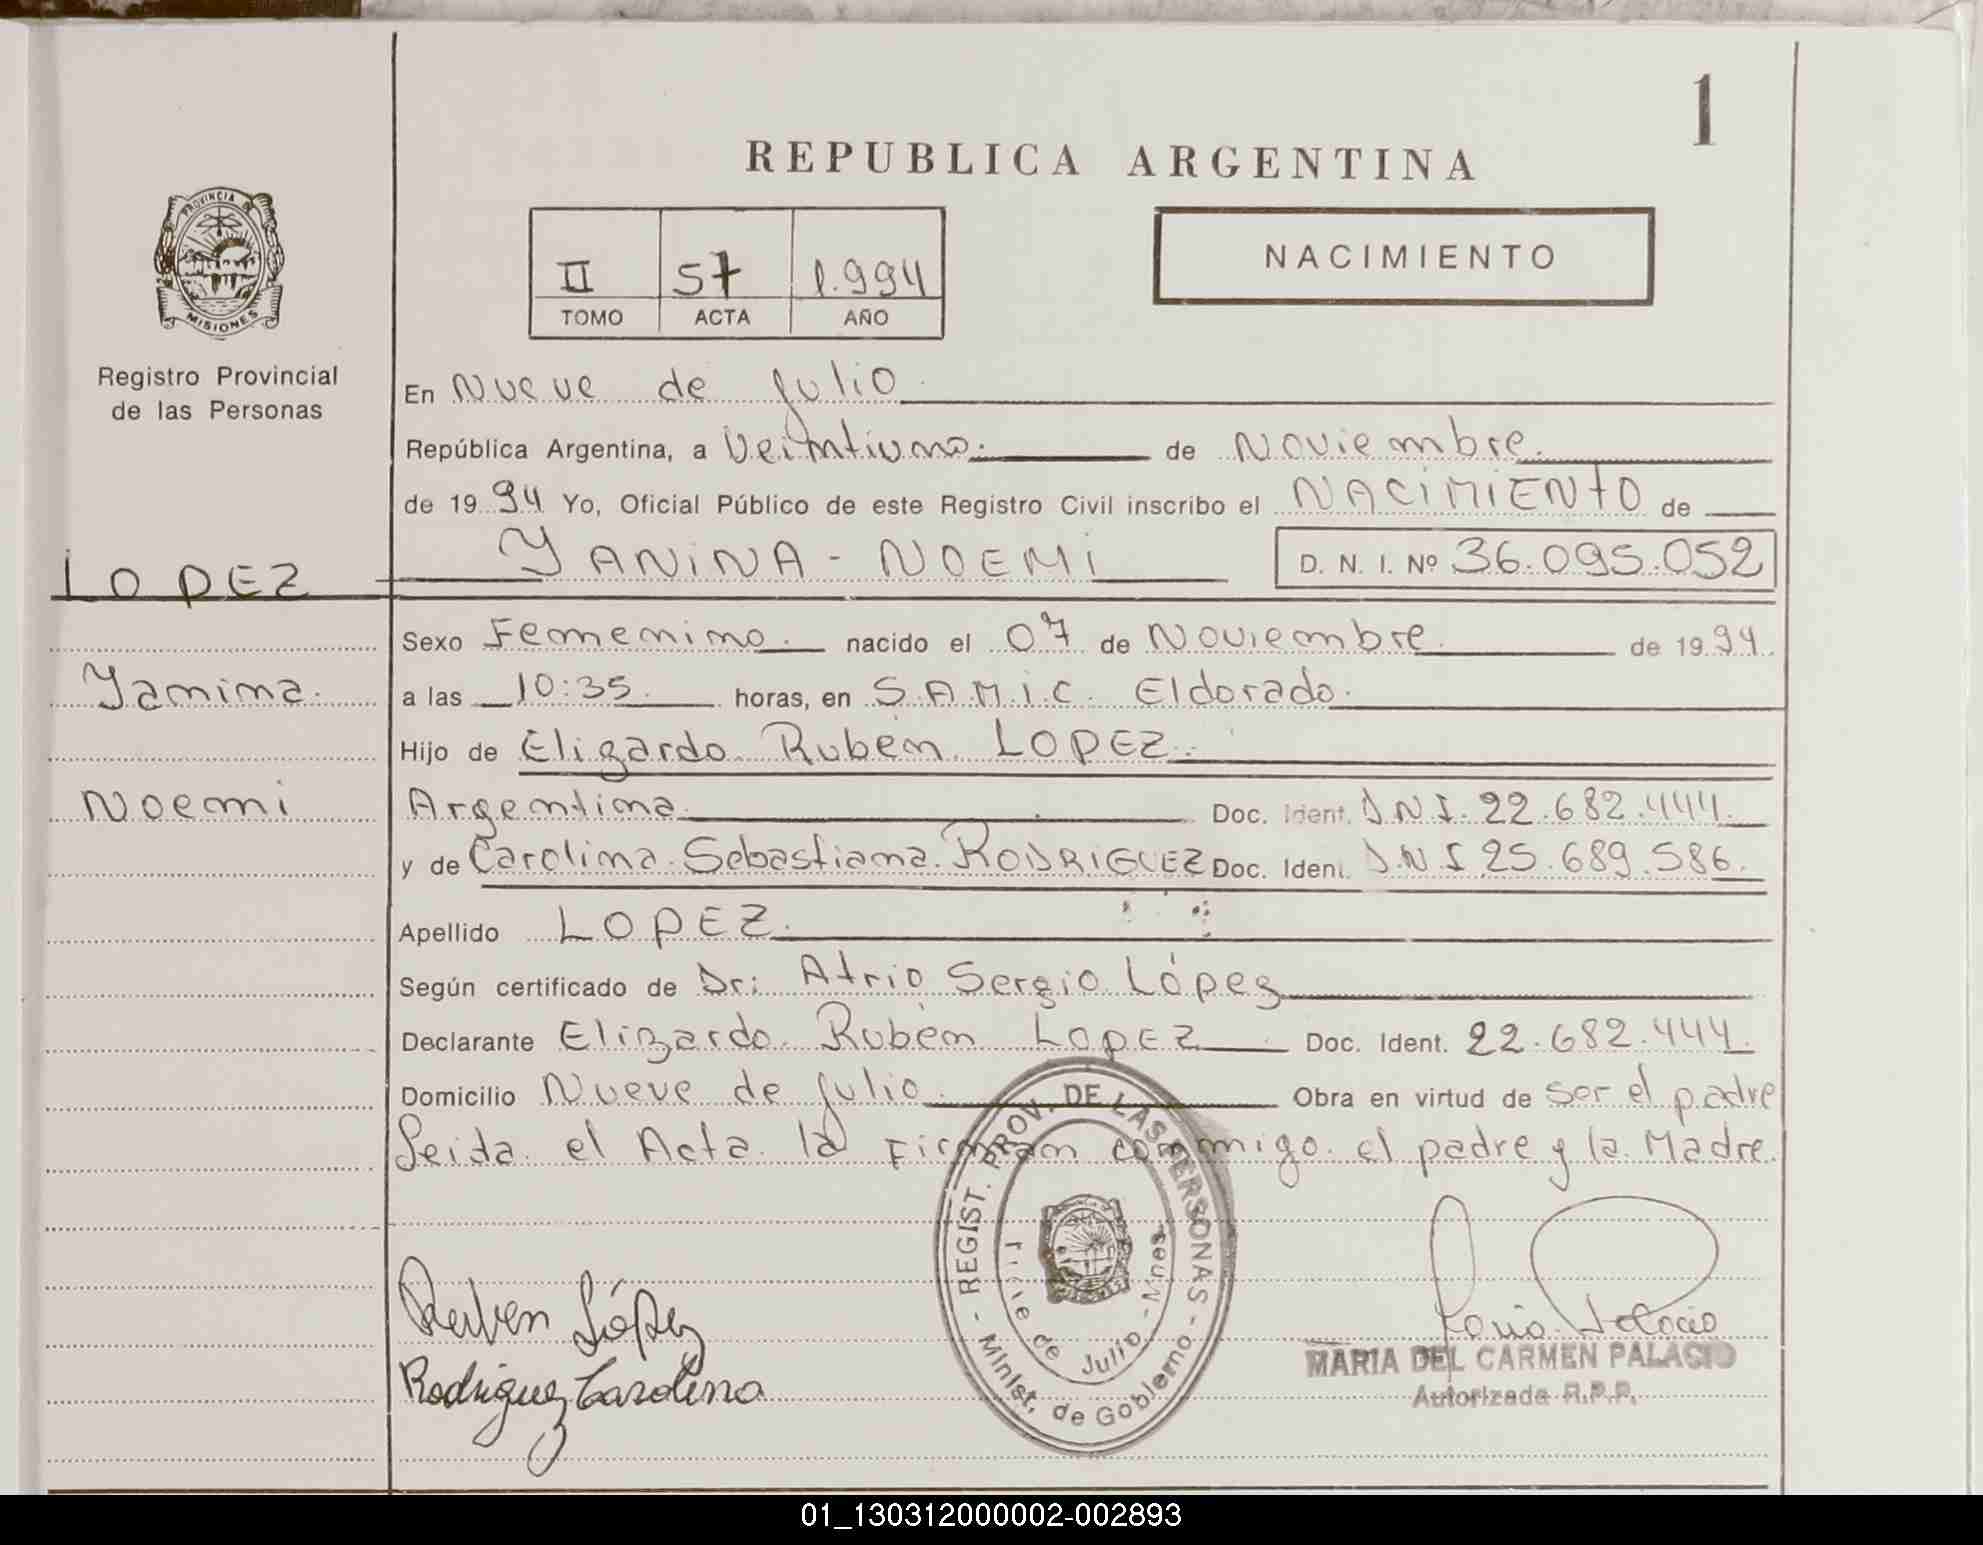 1
REPUBLICA ARGENTINA
PROVINCIA DE
MISIONES
Registro Provincial
de las Personas
II 57 1.994
TOMO ACTA AÑO
NACIMIENTO
En Nueve de Julio.
República Argentina, a Veintiuno. de Noviembre.
de 1994 Yo, Oficial Público de este Registro Civil inscribo el NACIMIENTO de
YANINA - NOEMI D. N. I. Nº 36.095.052
LOPEZ
Yanina.
Noemi
Sexo Femenino. nacido el 07 de Noviembre. de 1994.
a las 10:35. horas, en S.A.M.I.C. Eldorado.
Hijo de Elizardo Rubén LOPEZ.
Argentina. Doc. Ident. D.N.I. 22.682.444.
y de Carolina Sebastiana RODRIGUEZ Doc. Ident. D.N.I 25.689.586.
Apellido LOPEZ.
Según certificado de Dr: Atrio Sergio López
Declarante Elizardo Rubén LOPEZ Doc. Ident. 22.682.444.
Domicilio Nueve de Julio. Obra en virtud de ser el padre
Leida el Acta la Firman conmigo el padre y la Madre.
REGIST. PROV. DE LAS PERSONAS
de Julio - Mnes.
- Minist. de Gobierno -
Ruben López
Rodriguez Carolina
MARIA DEL CARMEN PALACIO
Autorizada R.P.P.
01_130312000002-002893